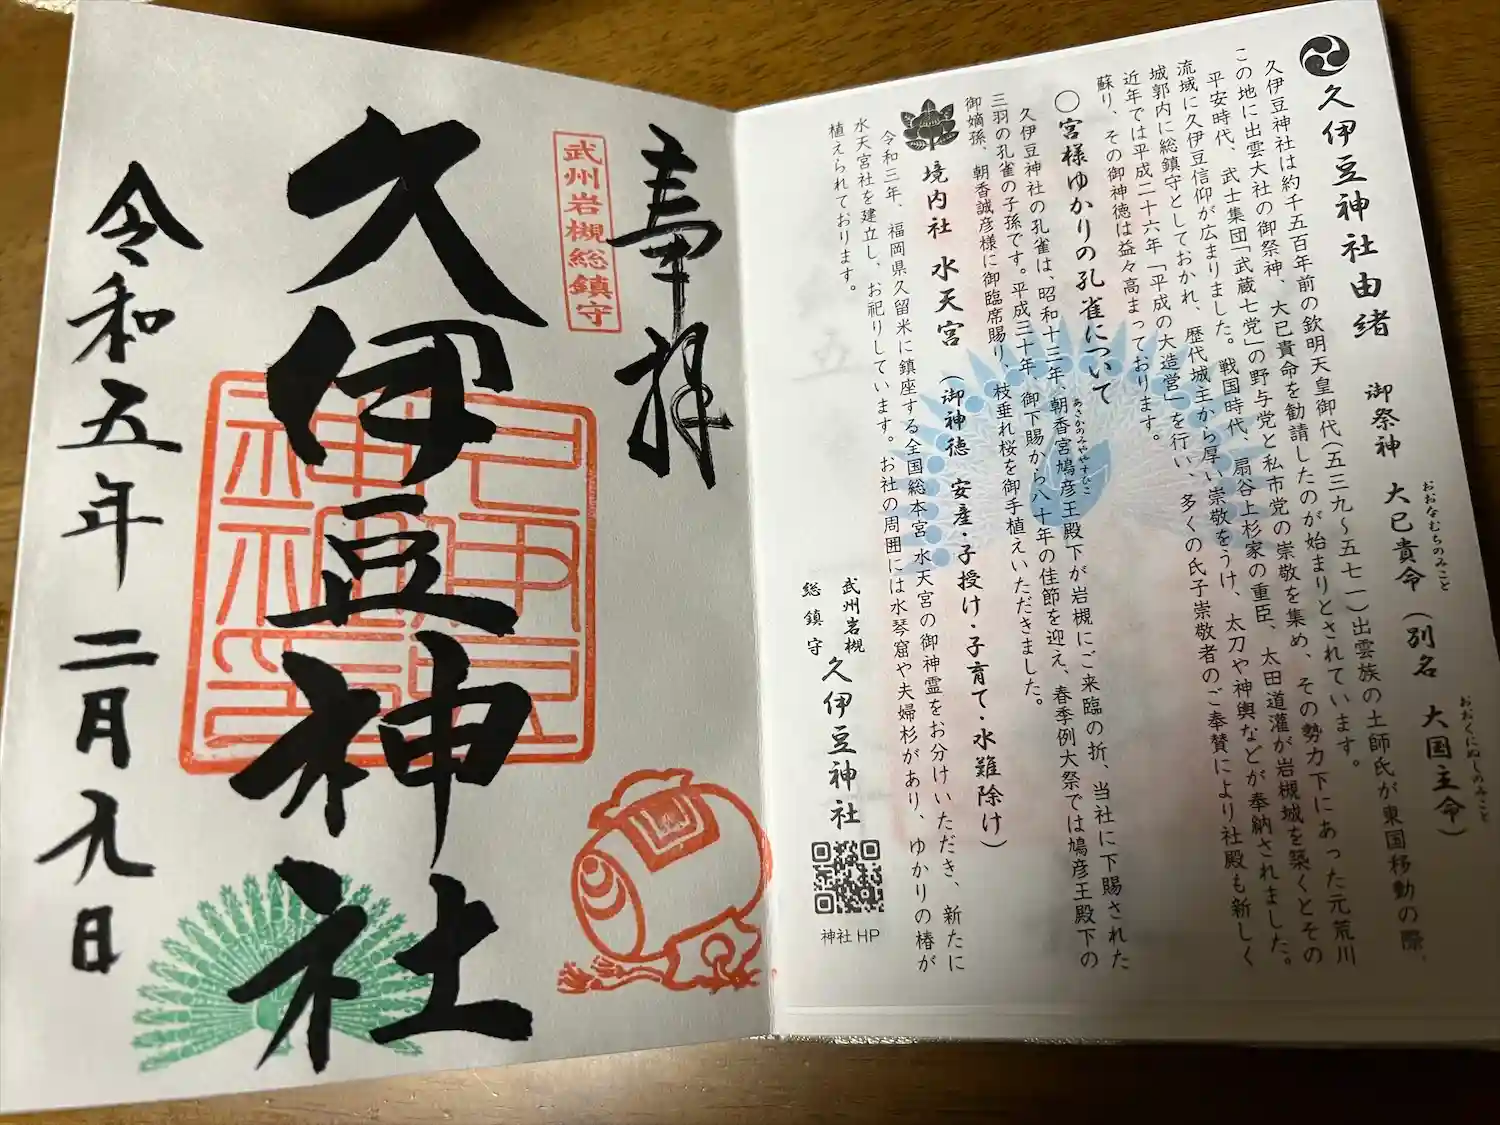 久伊豆神社由緒 御祭神 大已貴命(別名 大国主命)
おおなむちのみこと
おおくにぬしのみこと
久伊豆神社は約千五百年前の欽明天皇御代(五三九〜五七一)出雲族の土師氏が東国移動の際、
この地に出雲大社の御祭神、大已貴命を勧請したのが始まりとされています。
平安時代、武士集団「武蔵七党」の野与党と私市党の崇敬を集め、その勢力下にあった元荒川
流域に久伊豆信仰が広まりました。戦国時代、扇谷上杉家の重臣、太田道灌が岩槻城を築くとその
城郭内に総鎮守としておかれ、歴代城主から厚い崇敬をうけ、太刀や神輿などが奉納されました。
近年では平成二十六年「平成の大造営」を行い、多くの氏子崇敬者のご奉賛により社殿も新しく
蘇り、その御神徳は益々高まっております。
〇宮様ゆかりの孔雀について
久伊豆神社の孔雀は、昭和十三年、朝香宮鳩彦王殿下が岩槻にご来臨の折、当社に下賜された
あさかのみややすひこ
三羽の孔雀の子孫です。平成三十年、御下賜から八十年の佳節を迎え、春季例大祭では鳩彦王殿下の
御嫡孫、朝香誠彦様に御臨席賜り、枝垂れ桜を御手植えいただきました。
境内社 水天宮(御神徳 安産・子授け・子育て・水難除け)
令和三年、福岡県久留米に鎮座する全国総本宮 水天宮の御神霊をお分けいただき、新たに
水天宮社を建立し、お祀りしています。お社の周囲には水琴窟や夫婦杉があり、ゆかりの椿が
植えられております。
武州岩槻
総鎮守
久伊豆神社
神社HP
奉拝
武州岩槻総鎮守
久伊豆神社
令和五年二月九日